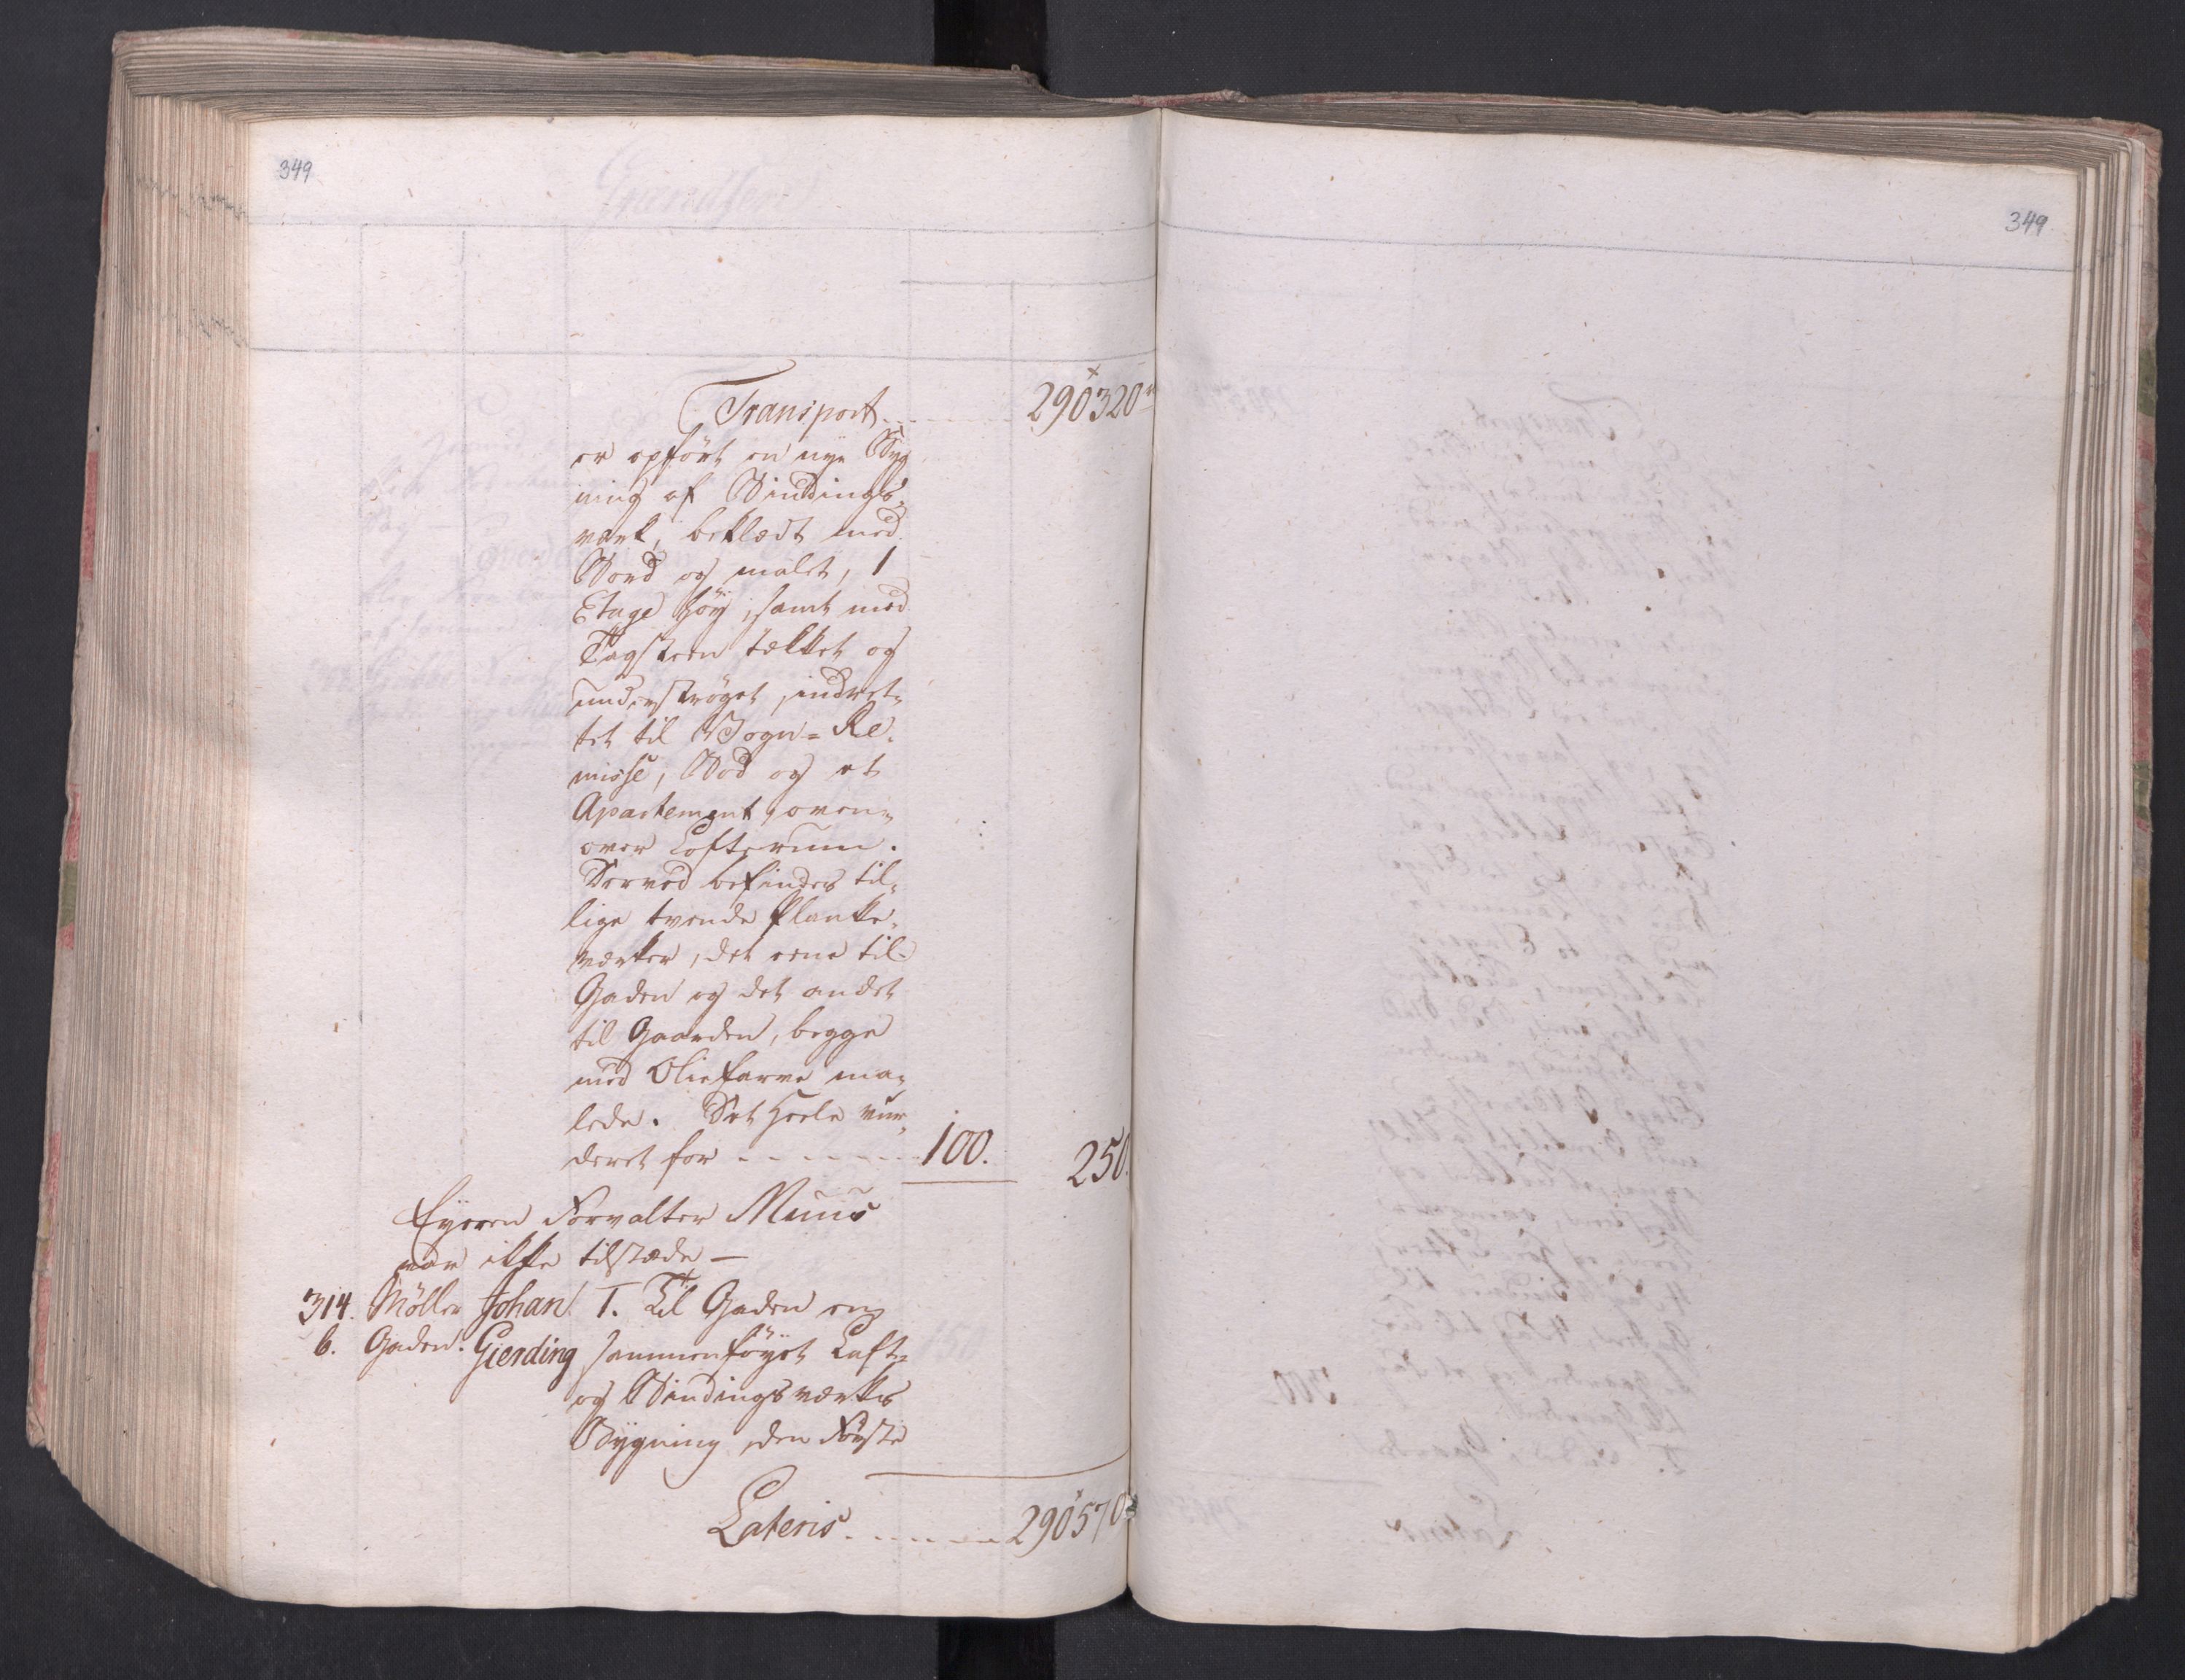 349
349
Transport 290320
er opfört en nye Byg
ning af Bindings,,
værk, beklædt med
Bord og malet, 1
Etage høy, samt med
Tagsteen tækket og
understrøget, indret,,
tet til Vogn=Re,,
misse, Bod og et
Apartement, oven,,
over Lofterum.
Derved befindes til,,
lige tvende Planke,,
værker, det eene til
Gaden og det andet
til Gaarden, begge
med Oliefarve ma,,
lede. Det Heele vur,,
deret for 100. 250.
Eyeren Forvalter Muus
var ikke tilstæde —
314. Möller Johan 1. Til Gaden en
b. Gaden. Gierding sammenføyet Laft,,
og Bindingsværks
Bygning, den Første
Lateris 290570